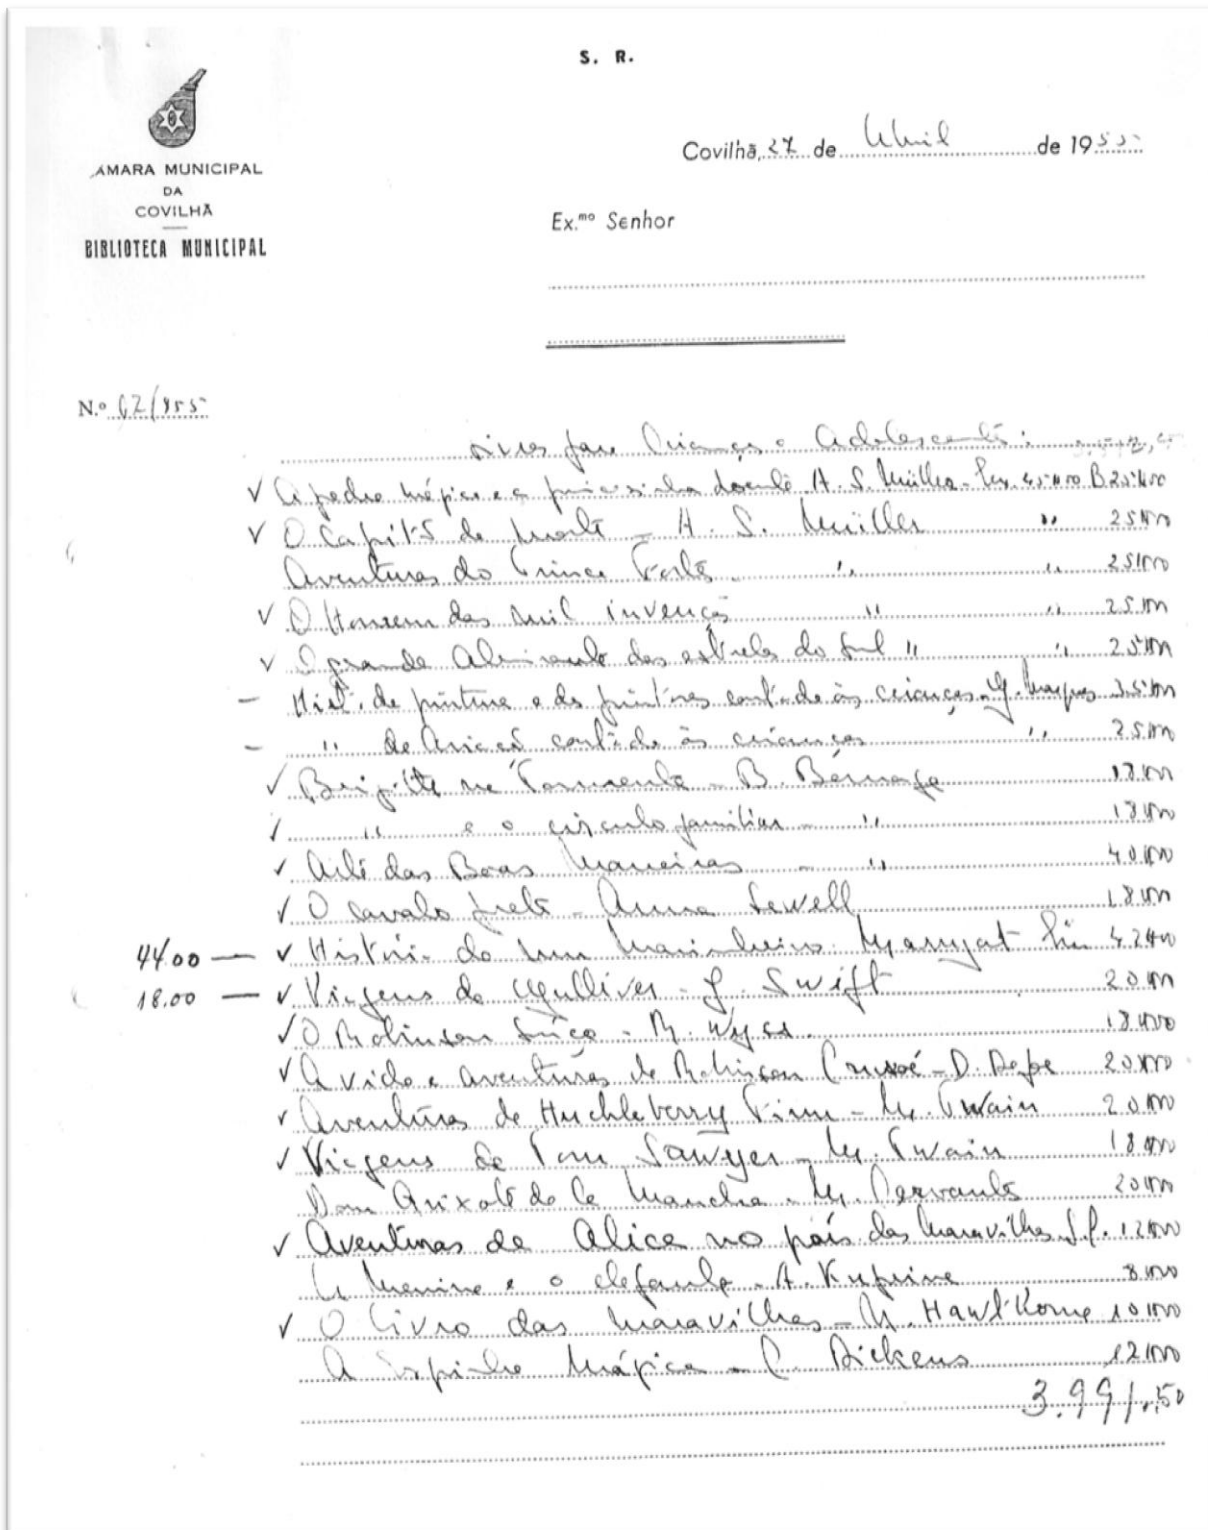 S. R.
CÂMARA MUNICIPAL
DA
COVILHÃ
BIBLIOTECA MUNICIPAL
Covilhã, 27 de Abril de 1955
Ex.mo Senhor
N.º 62/955
Livros para Crianças e Adolescentes:
✓ A pedra mágica e a princesinha doente A. S. Müller - 45$00 B 25$00
✓ O Capitão da morte - A. S. Müller " 25$00
Aventuras do Trinca Fortes " " 25$00
✓ O Homem das mil invenções " " 25$00
✓ O grande Almirante das estrelas do sul " " 25$00
- Hist. da pintura e dos pintores contada às crianças - G. Marques 35$00
- " da música contada às crianças " 25$00
✓ Brigitte na Tormenta - B. Bernage 18$00
✓ " e o círculo familiar - " 18$00
✓ Arte das Boas Maneiras - " 40$00
✓ O cavalo preto - Anna Sewell 18$00
44.00 — ✓ História de um Marinheiro Marryat 42$00
18.00 — ✓ Viagens de Gulliver - J. Swift 20$00
✓ O Robinson Suíço - R. Wyss. 18$00
✓ A vida e aventuras de Robinson Crusoé - D. Defoe 20$00
✓ Aventuras de Huckleberry Finn - M. Twain 20$00
✓ Viagens de Tom Sawyer - M. Twain 18$00
Dom Quixote de la Mancha - M. Cervantes 20$00
✓ Aventuras de Alice no país das Maravilhas 12$00
A Menina e o elefante - A. Kuprine 8$00
✓ O Livro das Maravilhas - N. Hawthorne 10$00
A Espinha Mágica - C. Dickens 12$00
3.991.50